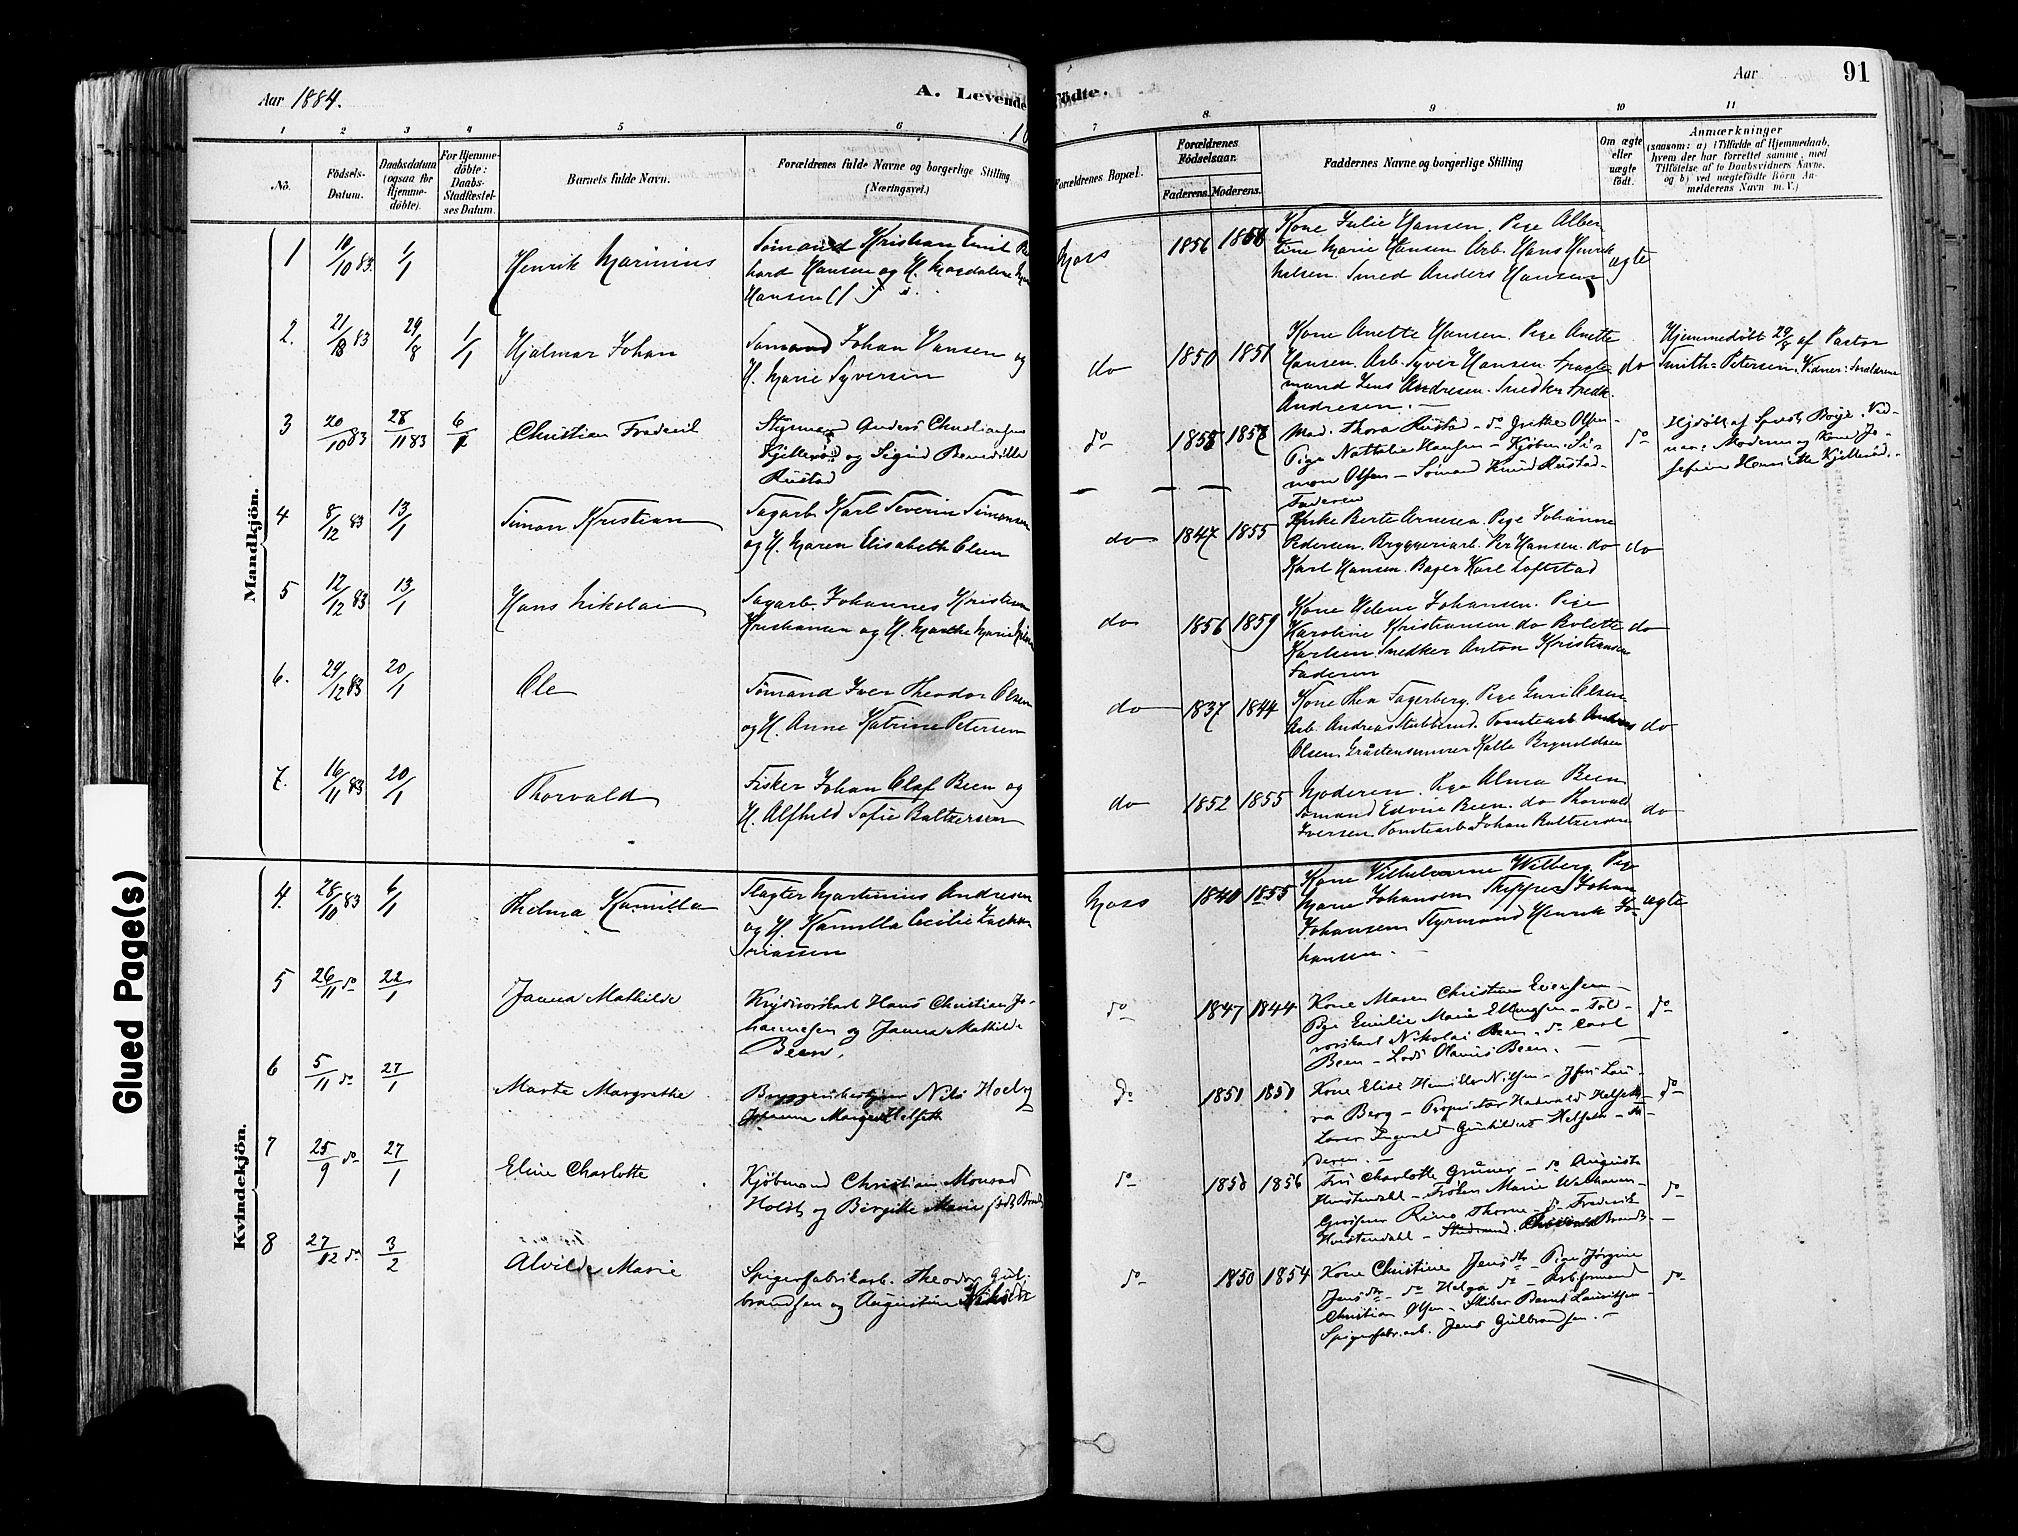 Aar 1884.
A. Levende
Födte.
Aar
91
1 2 3 4 5 6
7 8 9 10 11
No.
Födsels-Datum.
Daabsdatum (ogsaa for Hjemme-döbte).
For Hjemme-döbte: Daabs-Stadfæstel-ses Datum.
Barnets fulde Navn.
Forældrenes fulde Navne og borgerlige Stilling
(Næringsvei.)
Forældrenes Bopæl.
Forældrenes Födselsaar.
Faderens. Moderens.
Faddernes Navne og borgerlige Stilling
Om ægte eller uægte födt.
Anmærkninger
(saasom: a) i Tilfælde af Hjemmedaab,
hvem der har forrettet samme, med
Tilföielse af to Daabsvidners Navne,
og b) ved uægtefödte Börn An-
melderens Navn m. V.)
Mandkjön.
1 10/10 83 1/1 Henrik Marinius
Sömand Kristian Emil
hard Hansen og H. Magdalene
Hansen
Moss 1856
Kone Julie Hansen. Pige Alber
tine Marie Hansen Arb. Hans Henrik
Nelsen. Smed Anders Hansen
ægte
2. 21/ 83 29/8 1/1 Hjalmar Johan
Sömand Johan Hansen og
H. Marie Syversen
do 1850 1851
Kone Anette Hansen. Pige Anette
Hansen. Arb. Syver Hansen.
mand Jens Andresen. Snedker Fredk.
Andresen.
do
Hjemmedöbt 29/8 af Pastor
Smith-Petersen. Vidner: Forældrene
3 20/10 83 28/11 83 6/1 Christian Frederik
Styrmand Anders Christiansen
Kjellerød og Sigrid Benedikte
Rustad
do 1855 1857
Mad. Thora Rustad - do Grethe Olsen
Pige Nathalie Hansen - Kjöbm. Si-
mon Olsen - Sömand Knud Rustad -
Faderen
do
Hjdöbt af
Moderen og Kone Jo-
sefine Henriette Kjellerød.
4 8/12 83 13/1 Simon Kristian
Sagarb. Karl Severin Simonsen
og H. Maren Elisabeth Olsen
do 1847 1855
Berte Arnesen. Pige Johanne
Pedersen. Bryggeriarb. Per Hansen. do
Karl Hansen. Bager Karl Loftstad
do
5 12/12 83 13/1 Hans Nikolai
Sagarb. Johannes Kristian
Kristiansen og H. Marthe Marie
do 1856 1859
Kone Helene Johansen. Pige
Karoline Kristiansen do Bolette
Karlsen Snedker Anton Kristiansen
Faderen
do
6. 29/12 83 20/1 Ole
Sömand Iver Theodor Olsen
og H. Anne Katrine Petersen
do 1837 1844
Kone Thea Fagerberg. Pige Guri Olsen
Arb. Andreas Stubberud. Tomtearb Anders
Olsen. Kalle Brynildsen
do
7. 16/11 83 20/1 Thorvald
Fisker Johan Olaf Been og
H. Alfhild Sofie Baltzersen
do 1852 1855
Moderen. Pige Alma Been
Sömand Edvin Been. do Thorvald
Iversen. Tomtearb Johan Baltzersen
do
Kvindekjön.
4. 28/10 83 6/1 Thelma Kamilla
Slagter Martinius Andresen
og H. Kamilla Cecilie Zacha-
riassen
Moss 1840 1855
Kone Vilhelmine Wilberg Pige
Marie Johansen Skipper Johan
Johansen Styrmand Henrik Jo-
hansen.
ægte
5 26/11 do 22/1 Janna Mathilde
Krydsorskarl Hans Christian Jo-
hannesen og Janna Mathilde
Been.
do 1847 1844
Kone Maren Christine Evensen -
Pige Emilie Marie Ellingsen - Told-
rorskarl Nikolai Been - do Carl
Been - Lods Olavus Been.
do
6 5/11 do 27/1 Marte Margrethe
Nils Hoeby
Johanne Margrethe Helseth
do 1851 1850
Kone Elise Nilsen - Jfru Lau-
ra Berg - Proprietær Hartvald Helseth
Ingvald Helseth - Fa-
deren.
do
7 25/9 do 27/1 Eline Charlotte
Kjöbmand Christian Monrad
Holst og Birgitte Marie född Brandt
do 1850 1856
Fru Charlotte Grüner - do Augusta
Hvistendahl - Fröken Marie
Grosserer Rino Thorne - do Frederik
Hvistendahl - Student Brandt -
do
8 27/12 do 3/2 Alvilde Marie
Spigerfabrikarb. Theodor Gul-
brandsen og Augustine
do 1850 1854
Kone Christine Jensdtr - Pige Jørgine
Jensdtr - do Helga do - Arbformand
Christian Olsen - Skiber Bernt Lauritsen -
Spigerfabr.arb. Jens Gulbrandsen. -
do
Glued Page(s)